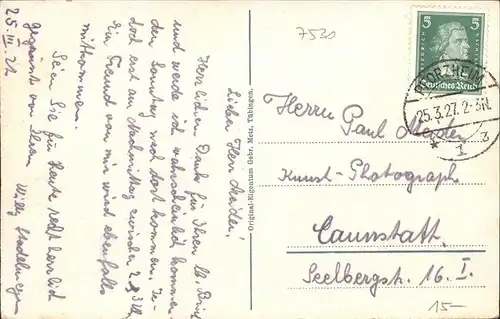 Lieber Herr Meider!
Herzlichen Dank für Ihren lb. Brief
und werde ich wahrscheinlich kommen-
den Sonntag nach dort kommen, je-
doch erst am Nachmittag zwischen 2 & 3 Uhr
Ein Freund von mir wird ebenfalls
mitkommen.
Seien Sie für heute recht herzlich
gegrüsst von Ihrem Willy
25. III. 27.
Original-Eigentum Gebr. Metz, Tübingen.
7530
5 5
Deutsches Reich
PFORZHEIM
25.3.27. 2-3N.
* 1 3
Herrn Paul
Kunst-Photograph
Cannstatt.
Seelbergstr. 16. I.
15-